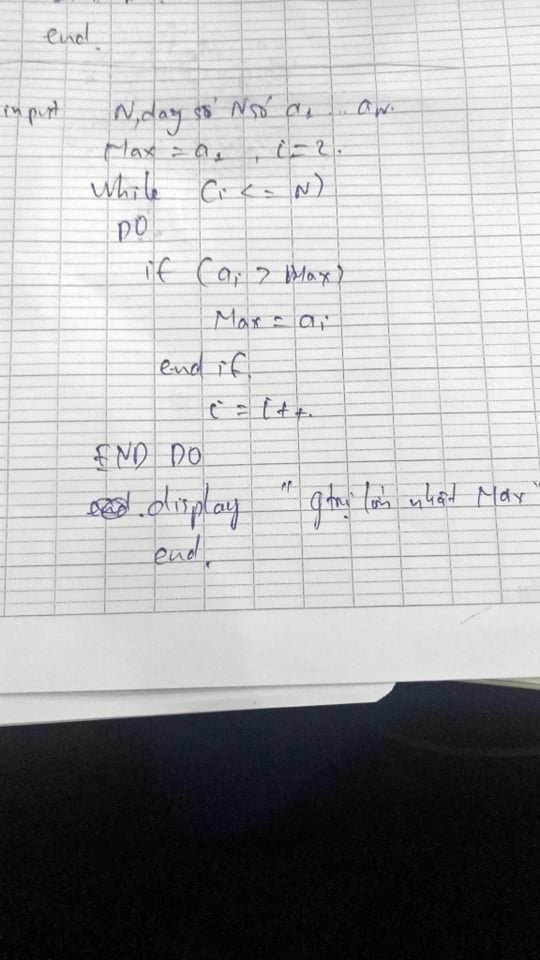 end.
input N, day số N số a1 ... aN.
Max = a1 , i = 2.
While (i <= N)
DO
if (ai > Max)
Max = ai
end if.
i = i++.
END DO
display " gtrị lớn nhất Max "
end.